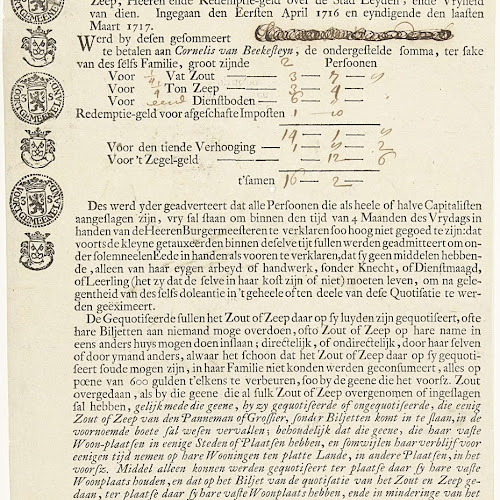 Zeep, Heeren ende Redemptie-geld over de Stad Leyden, ende Vryheid
van dien. Ingegaan den Eersten April 1716 en eyndigende den laasten
Maart 1717.
Werd by desen gesommeert
te betalen aan Cornelis van Beekesteyn, de ondergestelde somma, ter sake
van des selfs Familie, groot zijnde 2 Persoonen
Voor Vat Zout 3 — 7 — 9
Voor Ton Zeep 3 — 4
Voor eend Dienstboden 6 — 8
Redemptie-geld voor afgeschafte Imposten 1 — 10
14 — 1 — 9
Voor den tiende Verhooging 1 — 8 — 2
Voor 't Zegel-geld 12 — 6
t'samen 16 — 2 —
Des werd yder geadverteert dat alle Persoonen die als heele of halve Capitalisten
aangeslagen zijn, vry sal staan om binnen den tijd van 4 Maanden des Vrydags in
handen van de Heeren Burgermeesteren te verklaren soo hoog niet gegoed te zijn: dat
voorts de kleyne getauxeerden binnen deselve tijt sullen werden geadmitteert om on-
der solemneelen Eede in handen als vooren te verklaren, dat sy geen middelen hebben-
de, alleen van haar eygen arbeyd of handwerk, sonder Knecht, of Dienstmaagd,
of Leerling (het zy dat de selve in haar kost zijn of niet) moeten leven, om na ge-
legentheid van des selfs doleantie in 't geheele of ten deele van dese Quotisatie te wer-
den geëximeert.
De Gequotiseerde sullen het Zout of Zeep daar op sy luyden zijn gequotiseert, ofte
hare Biljetten aan niemand moge overdoen, ofto Zout of Zeep op hare name in
eens anders huys mogen doen inslaan; directelijk, of ondirectelijk, door haar selven
of door ymand anders, alwaar het schoon dat het Zout of Zeep daar op sy gequoti-
seert soude mogen zijn, in haar Familie niet konden werden geconsumeert, alles op
pœne van 600 gulden t'elkens te verbeuren, soo by de geene die het voorsz. Zout
overgedaan, als by die geene die al sulk Zout of Zeep overgenomen of ingeslagen
sal hebben, gelijk mede die geene, by zy gequotiseerde of ongequotiseerde, die eenig
Zout of Zeep van den Panneman of Grossier, sonder Biljetten komt in te slaan, in de
voornoemde boete sal wesen vervallen; behoudelijk dat die geene, die haar vaste
Woon-plaatsen in eenige Steden of Plaatsen hebben, en somwijlen haar verblijf voor
eenigen tijd nemen op hare Wooningen ten platte Lande, in andere Plaatsen, in het
voorsz. Middel alleen konnen werden gequotiseert ter plaatse daar sy hare vaste
Woonplaats houden, en dat op het Biljet van de quotisatie van het Zout en Zeep ge-
daan, ter plaatse daar sy hare vaste Woonplaats hebben, ende in mindering van het